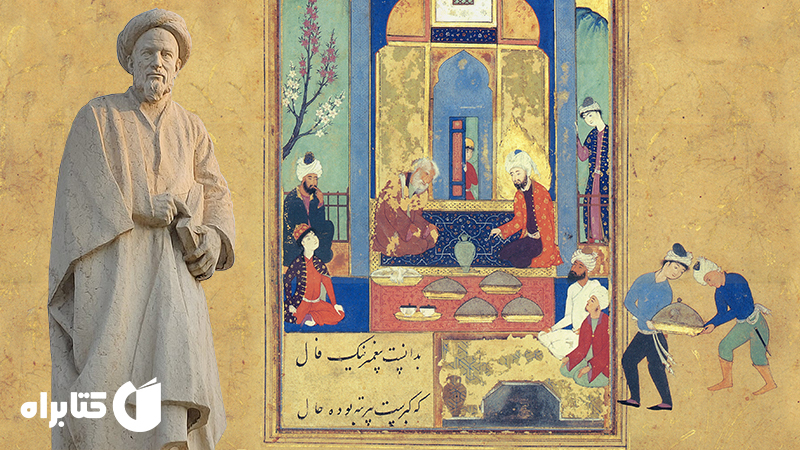 بدانست پیغمبر نیک فال
که گبرست پیر تبه بوده حال
کتابراه